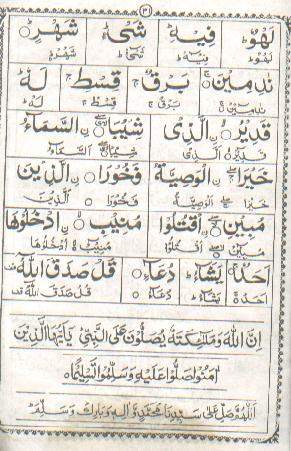 ٣١
لَهْوٌ فِيْهِ شَىْءٌ شَهْرٌ
لَهْوْ فِيْهْ شَىْءْ شَهْرْ
نٰدِمِيْنَ بَرْقٌ قِسْطٌ لَهٗ
نٰدِمِيْنْ بَرْقْ قِسْطْ لَهْ
قَدِيْرُ ۨالَّذِىْ شِيْبَا ۨالسَّمَآءُ
قَدِيْرُ ۨالَّذِىْ شِيْبَا ۨالسَّمَآءُ
خَيْرَا ۨالْوَصِيَّةُ فَخُوْرَا ۨالَّذِيْنَ
خَيْرَا ۨالْوَصِيَّةُ فَخُوْرَا ۨالَّذِيْنَ
مُبِيْنِ ۨاقْتُلُوْا مُنِيْبِ ۨادْخُلُوْهَا
مُبِيْنِ ۨاقْتُلُوْا مُنِيْبِ ۨادْخُلُوْهَا
اَحَدٌ يَشَآءُ دُعَآءِ قُلْ صَدَقَ اللّٰهُ
اَحَدْ يَشَآءْ دُعَآءْ قُلْ صَدَقَ اللّٰهُ
اِنَّ اللّٰهَ وَمَلٰٓئِكَتَهٗ يُصَلُّوْنَ عَلَى النَّبِىِّ يٰٓاَيُّهَا الَّذِيْنَ
اٰمَنُوْا صَلُّوْا عَلَيْهِ وَسَلِّمُوْا تَسْلِيْمًا
اَللّٰهُمَّ صَلِّ عَلٰى سَيِّدِنَا مُحَمَّدٍ وَّاٰلِهٖ وَبَارِكْ وَسَلِّمْ